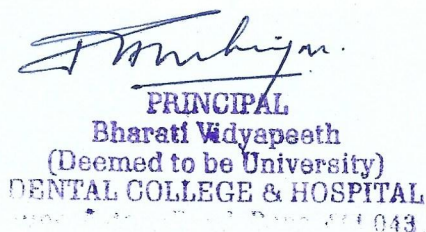 PRINCIPAL
Bharati Vidyapeeth
(Deemed to be University)
DENTAL COLLEGE & HOSPITAL
043